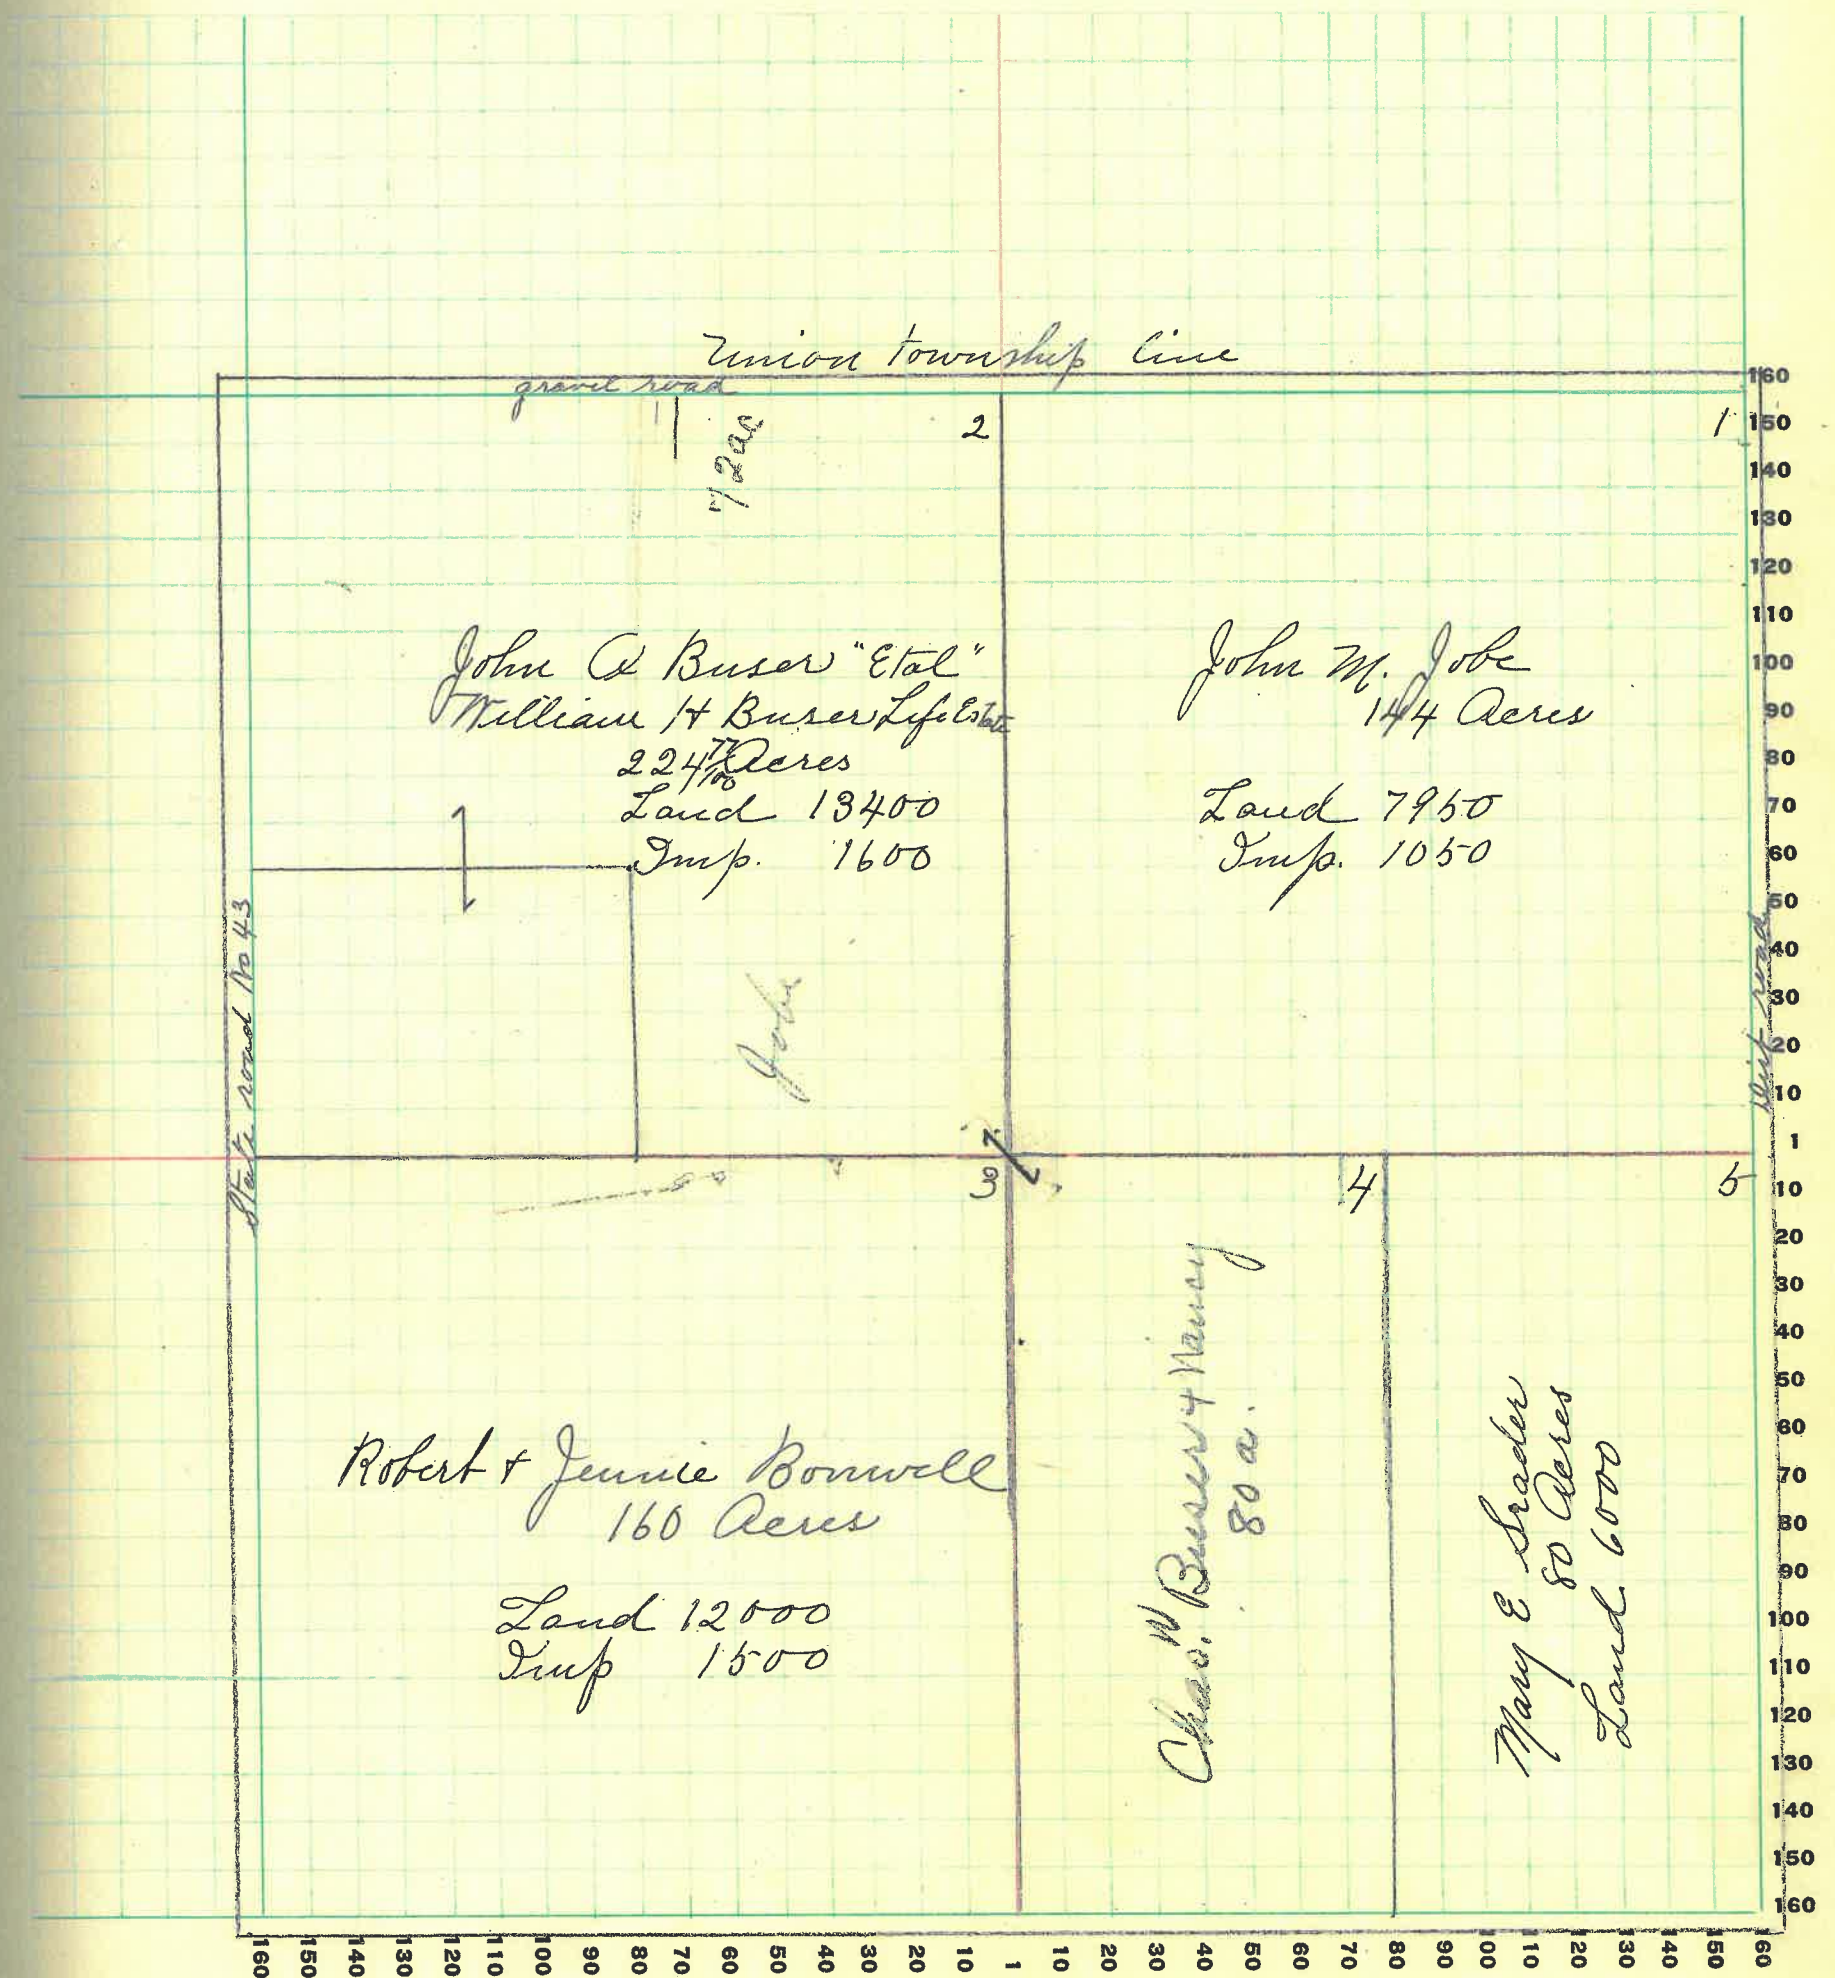 Union township line
gravel road
2
1
72 ac
John A Buser "Etal"
William H Buser Life Estate
224 77/100 Acres
Land 13400
Imp. 1600
John M. Jobe
144 Acres
Land 7950
Imp. 1050
State road No 43
Dirt road
Jobe
3
4
5
Robert + Jennie Bonwell
160 Acres
Land 12000
Imp 1500
Chas. W Buser + Nancy
80 a.
Mary E Srader
80 Acres
Land 6000
160
150
140
130
120
110
100
90
80
70
60
50
40
30
20
10
1
10
20
30
40
50
60
70
80
90
100
110
120
130
140
150
160
160 150 140 130 120 110 100 90 80 70 60 50 40 30 20 10 1 10 20 30 40 50 60 70 80 90 100 110 120 130 140 150 160